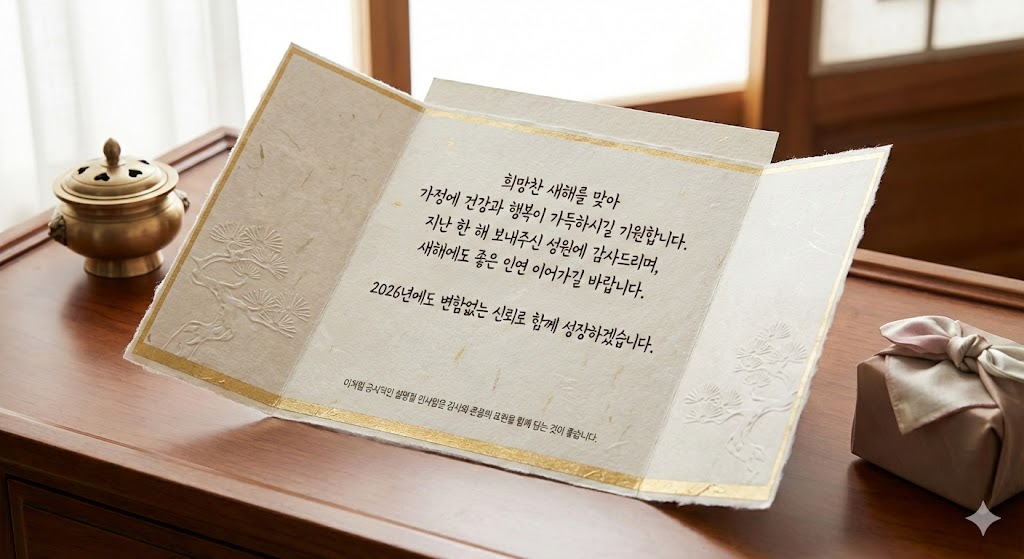 희망찬 새해를 맞아
가정에 건강과 행복이 가득하시길 기원합니다.
지난 한 해 보내주신 성원에 감사드리며,
새해에도 좋은 인연 이어가길 바랍니다.
2026년에도 변함없는 신뢰로 함께 성장하겠습니다.
이처럼 공식적인 설명절 인사말은 감사와 존중의 표현을 함께 담는 것이 좋습니다.